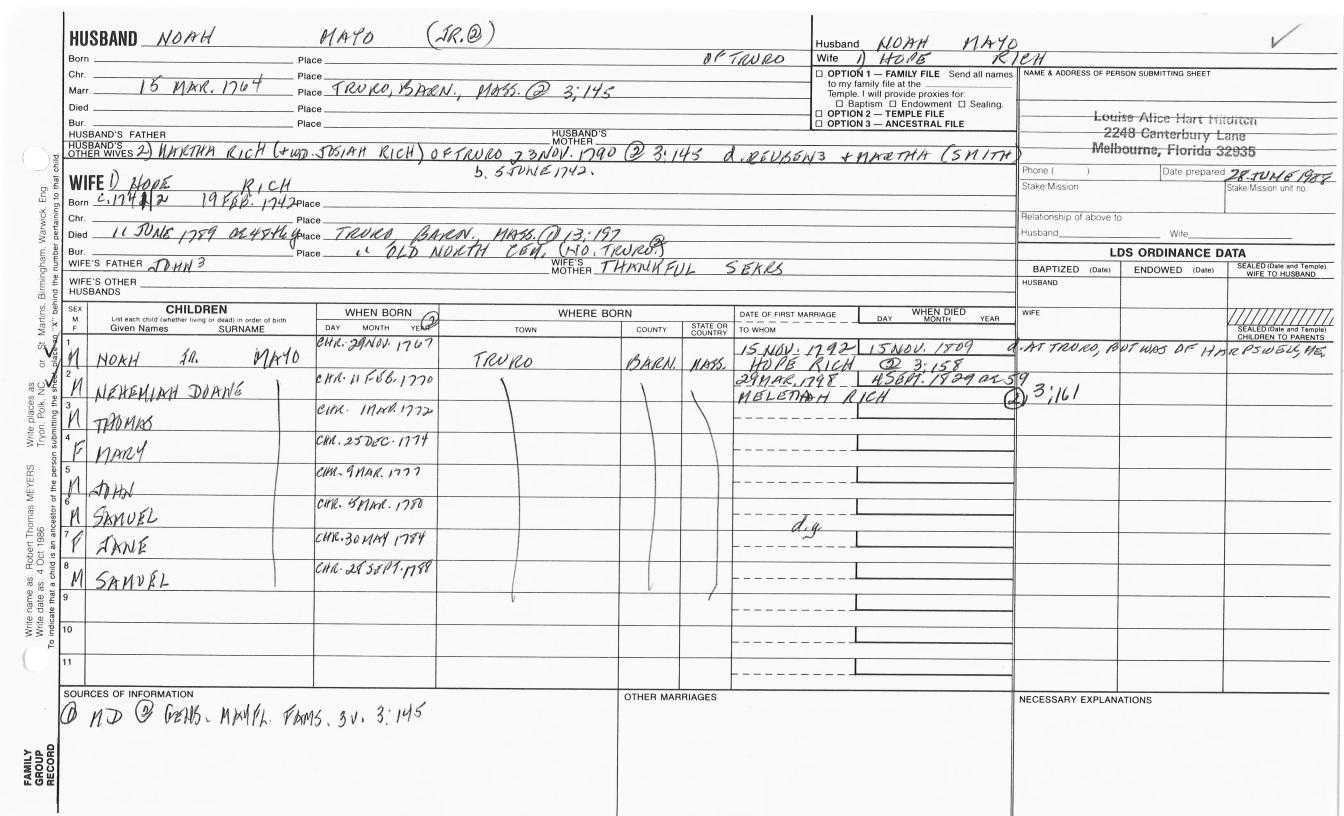 HUSBAND NOAH MAYO (JR.②)
Born Place OF TRURO
Chr. Place
Marr 15 MAR. 1764 Place TRURO, BARN., MASS. ② 3;145
Died Place
Bur. Place
HUSBAND'S FATHER HUSBAND'S MOTHER
HUSBAND'S OTHER WIVES 2) MARTHA RICH (+WD. JOSIAH RICH) OF TRURO 23 NOV. 1790 ② 3:145 d. REUBEN3 + MARTHA (SMITH)
b. 5 JUNE 1742.
Husband NOAH MAYO
Wife 1) HOPE RICH
☐ OPTION 1 — FAMILY FILE Send all names
to my family file at the
Temple. I will provide proxies for:
☐ Baptism ☐ Endowment ☐ Sealing.
☐ OPTION 2 — TEMPLE FILE
☐ OPTION 3 — ANCESTRAL FILE
NAME & ADDRESS OF PERSON SUBMITTING SHEET
Louise Alice Hart
2248 Canterbury Lane
Melbourne, Florida 32935
Phone ( ) Date prepared 28 JUNE 1988
Stake/Mission Stake/Mission unit no.
Relationship of above to
Husband Wife
WIFE 1) HOPE RICH
Born 19 FEB. 1742 Place
Chr. Place
Died 11 JUNE 1789 Place TRURO BARN., MASS. ① 13;197
Bur. Place " OLD NORTH CEM, (NO. TRURO)②
WIFE'S FATHER JOHN 3 WIFE'S MOTHER THANKFUL SEARS
WIFE'S OTHER HUSBANDS
LDS ORDINANCE DATA
BAPTIZED (Date) ENDOWED (Date) SEALED (Date and Temple) WIFE TO HUSBAND
HUSBAND
WIFE
SEALED (Date and Temple) CHILDREN TO PARENTS
SEX M F
CHILDREN
List each child (whether living or dead) in order of birth
Given Names SURNAME
WHEN BORN ②
DAY MONTH YEAR
WHERE BORN
TOWN COUNTY STATE OR COUNTRY
DATE OF FIRST MARRIAGE
TO WHOM
WHEN DIED
DAY MONTH YEAR
1 M NOAH JR. MAYO CHR. 29 NOV. 1767 TRURO BARN. MASS. 15 NOV. 1792 15 NOV. 1809 d. AT TRURO, BUT WAS OF HARPSWELL, ME.
HOPE RICH ② 3;158
2 M NEHEMIAH DOANE CHR. 11 FEB. 1770 29 MAR. 1798 4 SEPT. 1829 OR 59
RICH ② 3;161
3 M THOMAS CHR. 1 MAR. 1772
4 F MARY CHR. 25 DEC. 1774
5 M JOHN CHR. 9 MAR. 1777
6 M SAMUEL CHR. 5 MAR. 1780 d.y.
7 F JANE CHR. 30 MAY 1784
8 M SAMUEL CHR. 28 SEPT. 1788
9
10
11
SOURCES OF INFORMATION
① MD ② GENS. MAYFL. FAMS. 3 V. 3:145
OTHER MARRIAGES
NECESSARY EXPLANATIONS
FAMILY GROUP RECORD
Write name as: Robert Thomas MEYERS Write places as: Tryon, Polk, NC or St. Martins, Birmingham, Warwick, Eng.
Write date as: 4 Oct 1986
To indicate that a child is an ancestor of the person submitting the sheet, place an "X" behind the number pertaining to that child.